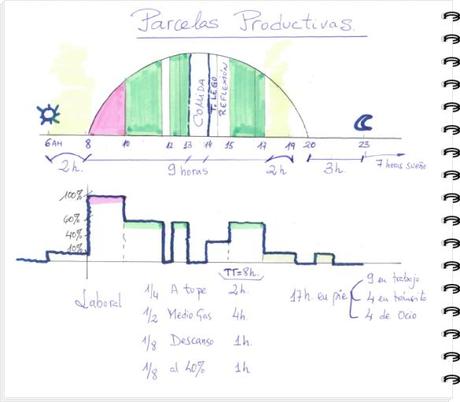 Parcelas Productivas.
COMIDA
F. LEGO
REFLEXIÓN
6AM 8 10 12 13 14 15 17 19 20 23
2h. 9 horas 2h 3h. 7 horas sueño
100%
60%
40%
10%
TT=8h.
Laboral
1/4 A tope 2h.
1/2 Medio Gas 4h.
1/8 Descanso 1h.
1/8 al 40% 1h.
17h. en pie
9 en trabajo
4 en tránsito
4 de Ocio